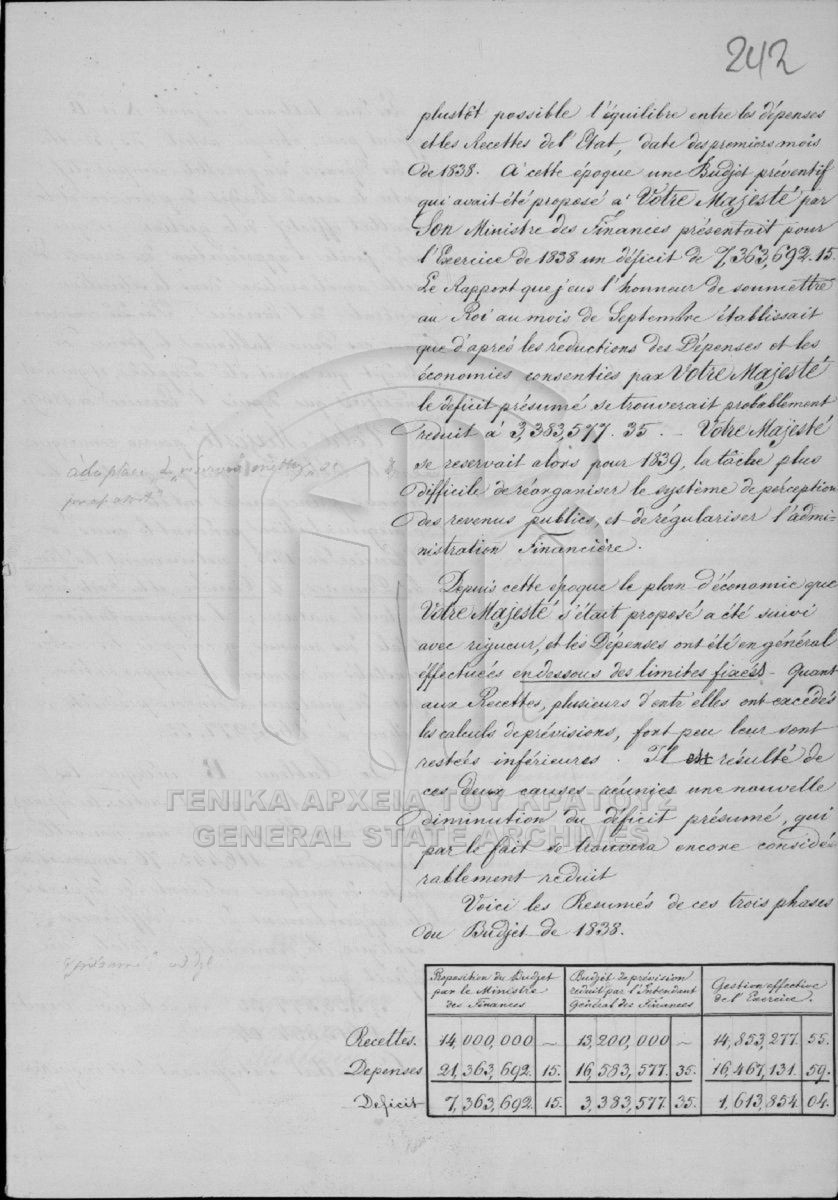 242
plustôt possible l'équilibre entre les dépenses
et les Recettes de l'Etat, date des premiers mois
de 1838. A cette époque une Budjet préventif
qui avait été proposé a Votre Majesté par
Son Ministre des Finances présentait pour
l'Exercice de 1838 un déficit de 7,363,692.15.
Le Rapport que j'eus l'honneur de soumettre
au Roi au mois de Septembre établissait
que d'aprés les reductions des Dépenses et les
économies consenties par Votre Majesté
le deficit présumé se trouverait probablement
reduit à 3,383,577.35. — Votre Majesté
se reservait alors pour 1839, la tâche plus
difficile de réorganiser le système de perception
des revenus publics, et de régulariser l'admi-
nistration Financière.
Depuis cette époque le plan d'économie que
Votre Majesté s'était proposé a été suivi
avec rigueur, et les Dépenses ont été en général
éffectuées en dessous des limites fixées - Quant
aux Recettes, plusieurs d'entr'elles ont excédés
les calculs de prévisions, fort peu leur sont
restées inférieures. Il est résulté de
ces deux causes réunies une nouvelle
diminution du déficit présumé, qui
par le fait se trouvera encore considé-
rablement reduit
Voici les Resumés de ces trois phases
du Budjet de 1838.
Proposition du Budjet par le Ministre des Finances
Budjet de prévision reduit par l'Intendant Général des Finances
Gestion effective de l'Exercice.
Recettes. 14,000,000 ~ 13,200,000 ~ 14,853,277. 55.
Depenses 21,363,692. 15. 16,583,577. 35. 16,467,131. 59.
Deficit 7,363,692. 15. 3,383,577. 35. 1,613,854. 04.
ΓΕΝΙΚΑ ΑΡΧΕΙΑ ΤΟΥ ΚΡΑΤΟΥΣ
GENERAL STATE ARCHIVES